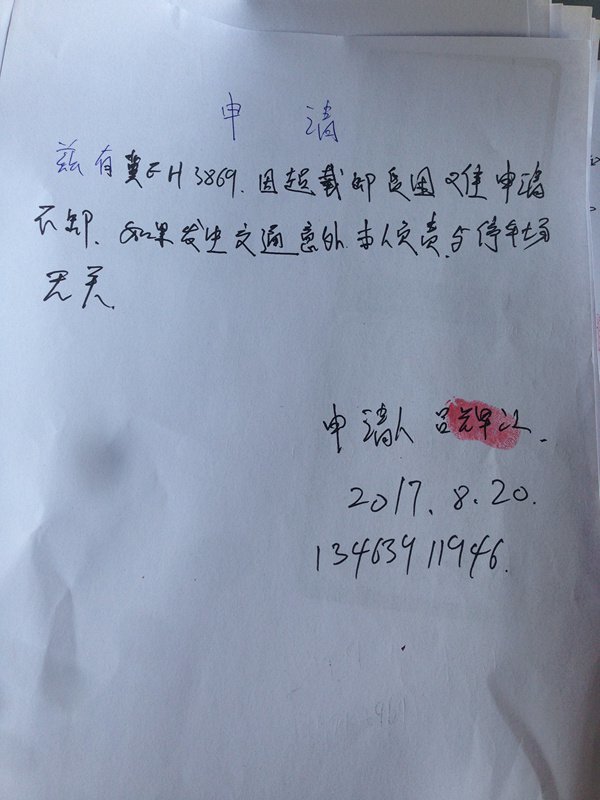 申 请
兹有冀EH3869.因超载卸货困难申请
不卸、如果发生交通意外.本人负责.与停车场
无关.
申请人 吕辉江.
2017.8.20.
13463911946.